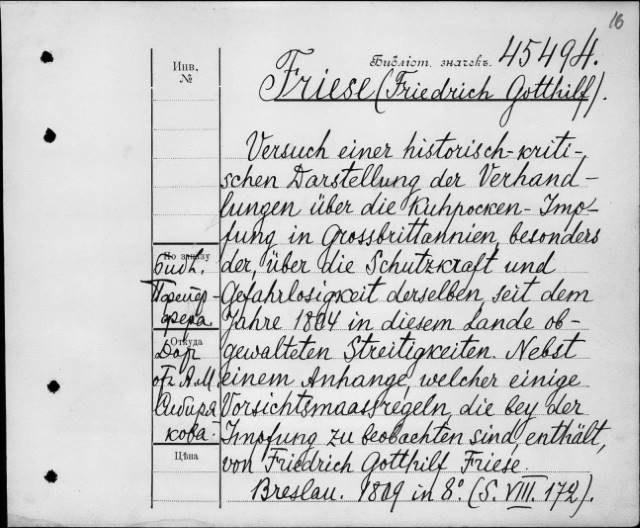 16
Библіот. значекъ. 45494.
Инв.
№
Friese (Friedrich Gotthilf).
Versuch einer historisch-kriti-
schen Darstellung der Verhand-
lungen über die Kuhpocken-Imp-
fung in Grossbrittannien, besonders
der, über die Schutzkraft und
Gefahrlosigkeit derselben, seit dem
Jahre 1804 in diesem Lande ob-
gewalteten Streitigkeiten. Nebst
einem Anhange, welcher einige
Vorsichtsmaassregeln, die bey der
Impfung zu beobachten sind, enthält,
von Friedrich Gotthilf Friese.
Breslau. 1809 in 8º. (S. VIII. 172).
По заказу
Библ.
Парпер-
фера
Откуда
Дар
отъ А.М.
Сибиря
кова
Цѣна